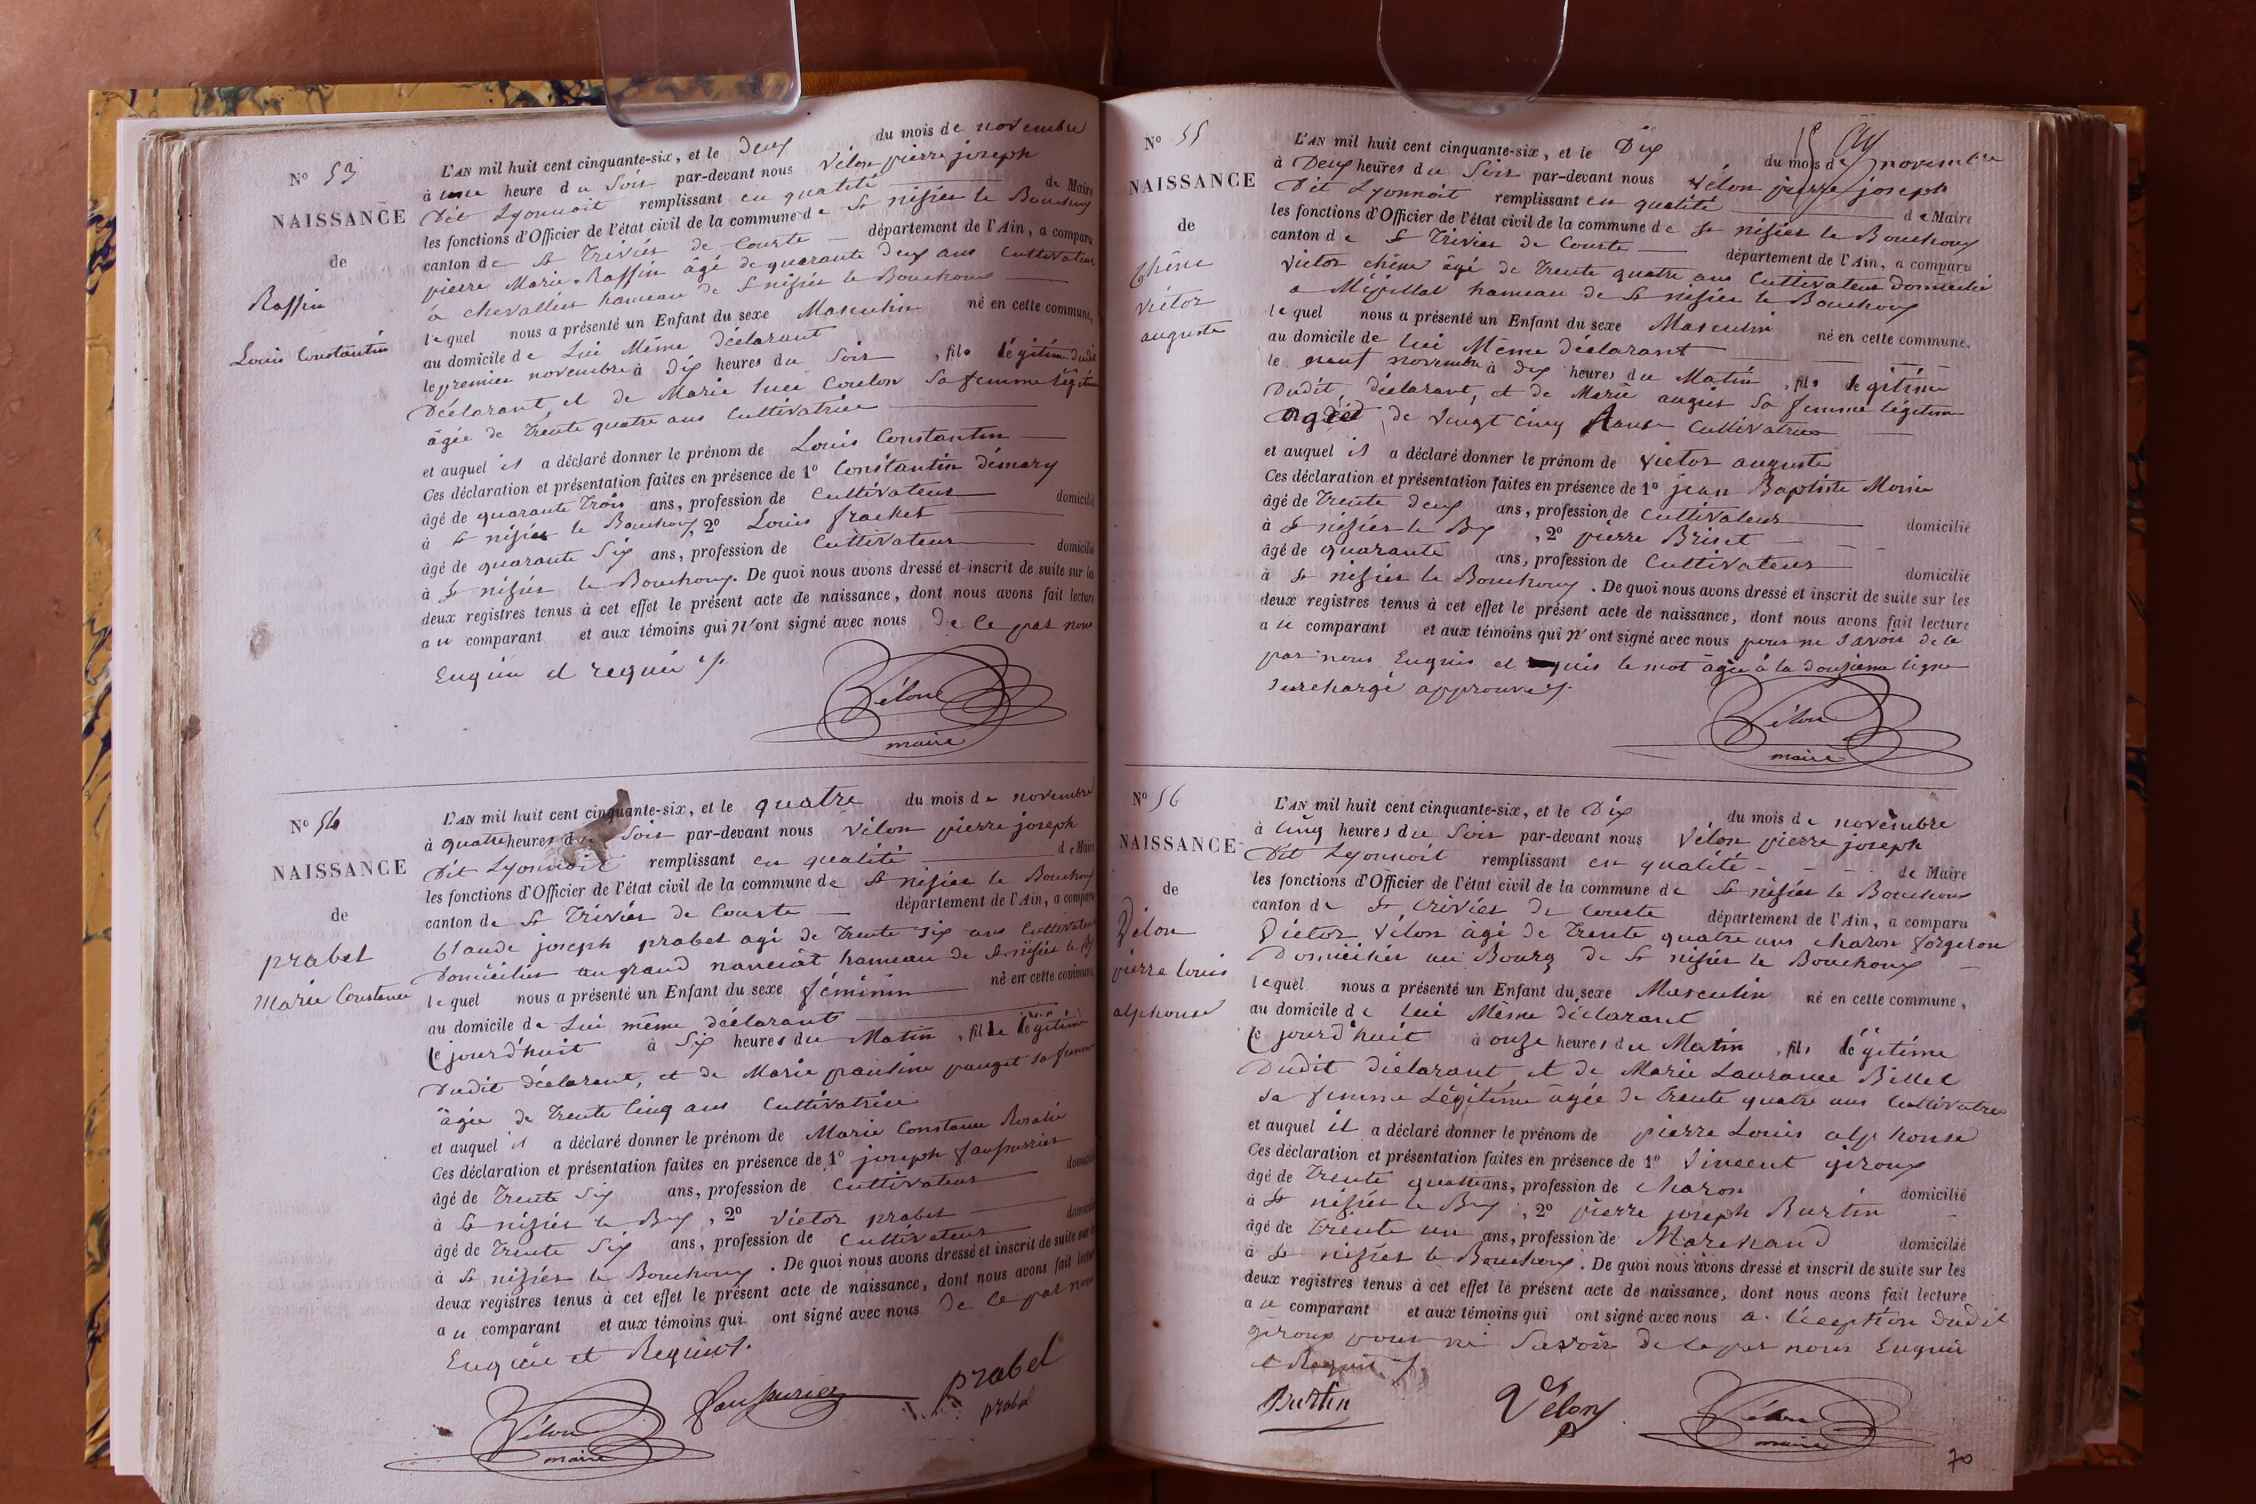 N° 53
NAISSANCE
de
Raffin
Louis Constantin
L'AN mil huit cent cinquante-six, et le Deux du mois de novembre
à une heure du Soir par-devant nous Vélon pierre joseph
Dit Lyonnoit remplissant en qualité de Maire
les fonctions d'Officier de l'état civil de la commune de St nisier le Bouchoux
canton de St Trivier de Courte département de l'Ain, a comparu
pierre Marie Raffin âgé de quarante deux ans Cultivateur
à chevallier hameau de St nisier le Bouchoux
lequel nous a présenté un Enfant du sexe Masculin né en cette commune,
au domicile de Lui Même déclarant
le premier novembre à dix heures du Soir, fils légitime dudit
Déclarant, et de Marie Luce Coulon Sa femme légitime
âgée de trente quatre ans Cultivatrice
et auquel il a déclaré donner le prénom de Louis Constantin
Ces déclaration et présentation faites en présence de 1° Constantin démary
âgé de quarante Trois ans, profession de Cultivateur domicilié
à St nisier le Bouchoux, 2° Louis frachet
âgé de quarante Six ans, profession de Cultivateur domicilié
à St nisier le Bouchoux. De quoi nous avons dressé et inscrit de suite sur les
deux registres tenus à cet effet le présent acte de naissance, dont nous avons fait lecture
au comparant et aux témoins qui n'ont signé avec nous De Ce par nous
Enquis et requis
Vélon
maire
N° 54
NAISSANCE
de
prabel
Marie Constance
L'AN mil huit cent cinquante-six, et le quatre du mois de novembre
à quatre heures du Soir par-devant nous Vélon pierre joseph
Dit Lyonnoit remplissant en qualité de Maire
les fonctions d'Officier de l'état civil de la commune de St nisier le Bouchoux
canton de St Trivier de Courte département de l'Ain, a comparu
Claude joseph prabel agé de Trente Six ans Cultivateur
Domicilier au grand nanciat hameau de St nisier le Bx
lequel nous a présenté un Enfant du sexe féminin né en cette commune,
au domicile de Lui même déclarant
Ce jourd'huit à Six heures du Matin, fille légitime
Dudit déclarant, et de Marie pauline pauget sa femme
âgée de Trente Cinq ans Cultivatrice
et auquel il a déclaré donner le prénom de Marie Constance Rosalie
Ces déclaration et présentation faites en présence de 1° joseph faussurier
âgé de Trente Six ans, profession de Cultivateur domicilié
à St nisier le Bx, 2° Victor prabel
âgé de Trente Six ans, profession de Cultivateur domicilié
à St nisier le Bouchoux. De quoi nous avons dressé et inscrit de suite sur les
deux registres tenus à cet effet le présent acte de naissance, dont nous avons fait lecture
au comparant et aux témoins qui ont signé avec nous De Ce par nous
Enquis et Requis
Vélon
maire
faussurier
prabel
prabel
N° 55
NAISSANCE
de
Chêne
Victor
auguste
L'AN mil huit cent cinquante-six, et le Dix du mois de novembre
à Deux heures du Soir par-devant nous Vélon pierre joseph
Dit Lyonnoit remplissant en qualité de Maire
les fonctions d'Officier de l'état civil de la commune de St nisier le Bouchoux
canton de St Trivier de Courte département de l'Ain, a comparu
Victor chêne âgé de Trente quatre ans Cultivateur Domicilié
a Mépillat hameau de St nisier le Bouchoux
lequel nous a présenté un Enfant du sexe Masculin né en cette commune,
au domicile de Lui Même déclarant
le neuf novembre à dix heures du Matin, fils légitime
Dudit, déclarant, et de Marie augier Sa femme légitime
Agée de Vingt Cinq ans Cultivatrice
et auquel il a déclaré donner le prénom de Victor auguste
Ces déclaration et présentation faites en présence de 1° jean Baptiste Morin
âgé de Trente Deux ans, profession de Cultivateur domicilié
à St nisier le Bx, 2° pierre Briset
âgé de quarante ans, profession de Cultivateur domicilié
à St nisier le Bouchoux. De quoi nous avons dressé et inscrit de suite sur les
deux registres tenus à cet effet le présent acte de naissance, dont nous avons fait lecture
au comparant et aux témoins qui n'ont signé avec nous pour ne Savoir de ce
par nous Enquis et requis le mot âgée à la douzième ligne
Surchargé approuvé
Vélon
maire
N° 56
NAISSANCE
de
Vélon
pierre Louis
alphonse
L'AN mil huit cent cinquante-six, et le Dix du mois de novembre
à Cinq heures du Soir par-devant nous Vélon pierre joseph
Dit Lyonnoit remplissant en qualité de Maire
les fonctions d'Officier de l'état civil de la commune de St nisier le Bouchoux
canton de St trivier de Courte département de l'Ain, a comparu
Victor Vélon âgé de Trente quatre ans charon forgeron
Domicilier au Bourg de St nisier le Bouchoux
lequel nous a présenté un Enfant du sexe Masculin né en cette commune,
au domicile de Lui Même déclarant
Ce jourd'huit à onze heures du Matin, fils légitime
Dudit déclarant, et de Marie Laurance Billet
Sa femme Légitime âgée de Trente quatre ans Cultivatrice
et auquel il a déclaré donner le prénom de pierre Louis alphonse
Ces déclaration et présentation faites en présence de 1° Vincent giroux
âgé de Trente quatre ans, profession de charon domicilié
à St nisier le Bx, 2° pierre joseph Burtin
âgé de Trente un ans, profession de Marchand domicilié
à St nisier le Bouchoux. De quoi nous avons dressé et inscrit de suite sur les
deux registres tenus à cet effet le présent acte de naissance, dont nous avons fait lecture
au comparant et aux témoins qui ont signé avec nous a l'éception dudit
giroux pour ne Savoir de ce par nous Enquis
et Requis
Burtin
Vélon
Vélon
maire
70